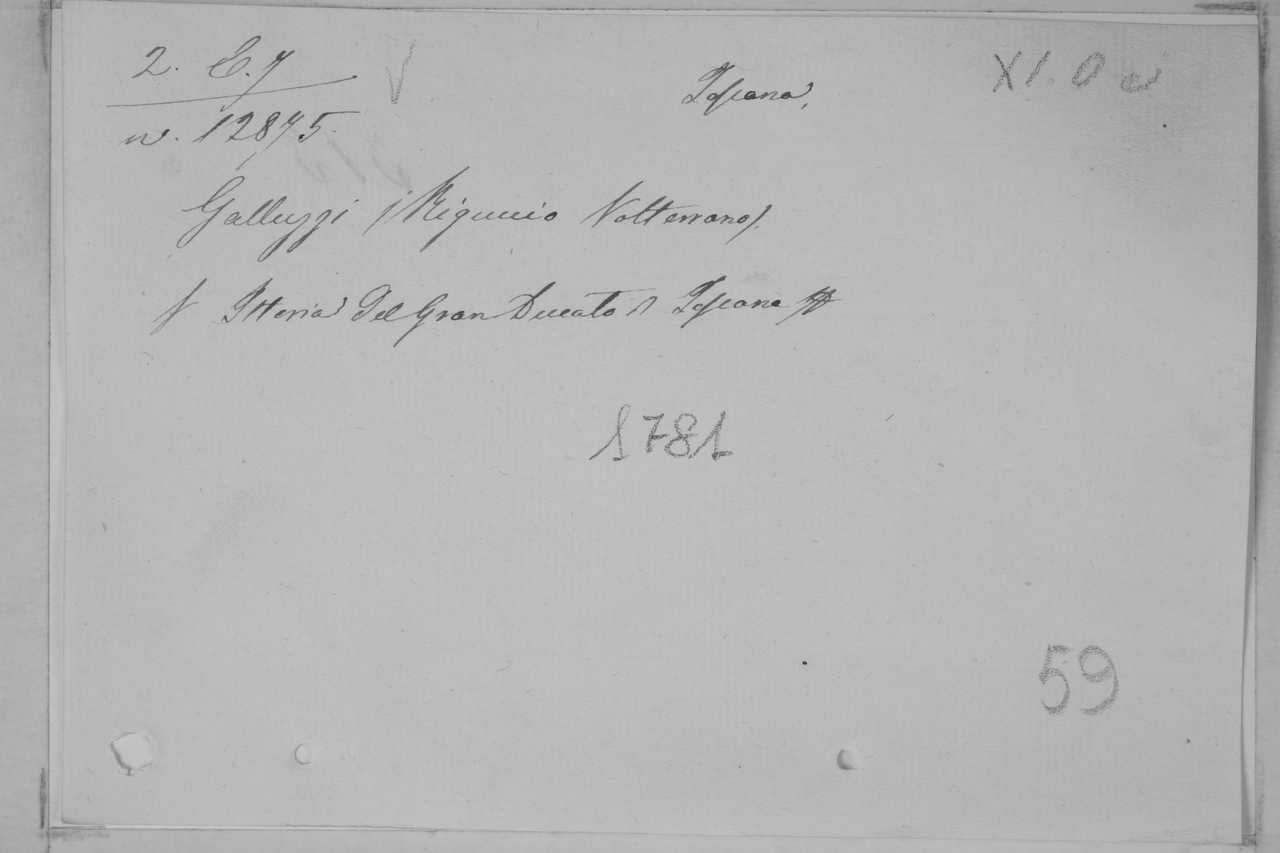 2. E. 7
Toscana.
XI. O a
w. 12875.
Galluzzi (Riguccio Volterrano).
Istoria del Gran Ducato d Toscana
1781
59